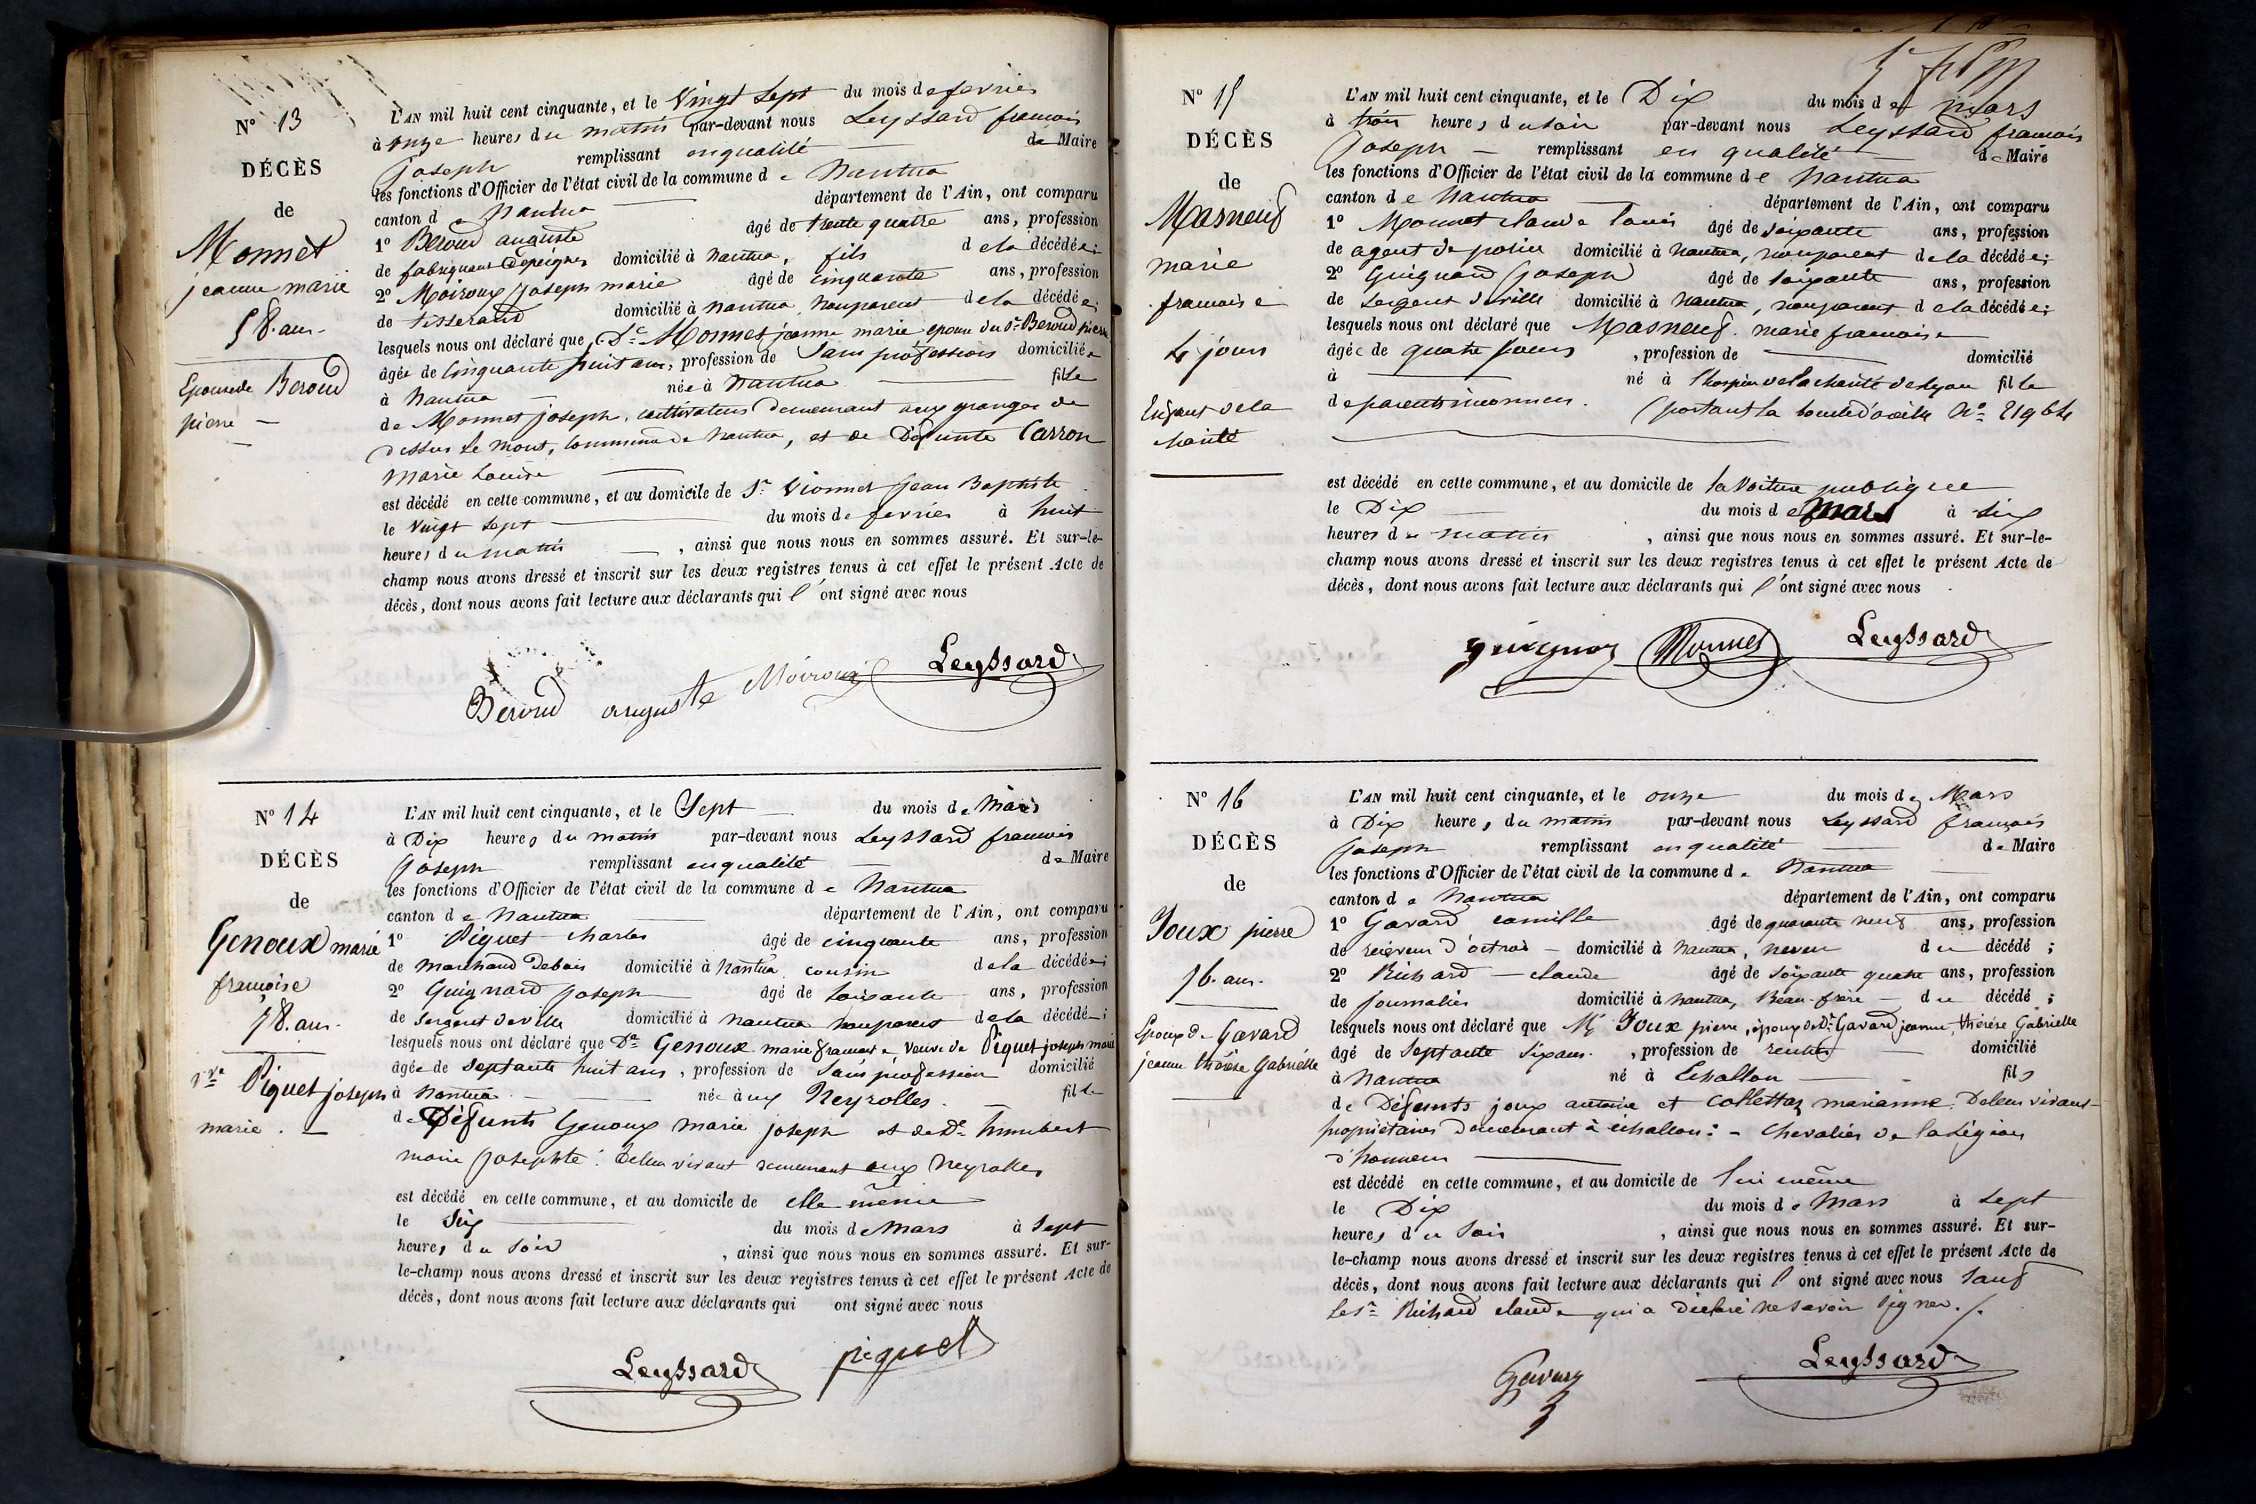 N° 13
DÉCÈS
de
Monnet
jeanne marie
58. ans.
Epouse de Beroud
pierre
L'AN mil huit cent cinquante, et le Vingt Sept du mois de fevrier
à onze heures du matin par-devant nous Leyssard françois
joseph remplissant en qualité de Maire
les fonctions d'Officier de l'état civil de la commune de Nantua
canton de Nantua département de l'Ain, ont comparu
1° Beroud auguste âgé de trente quatre ans, profession
de fabriquant de peignes domicilié à Nantua, fils de la décédée;
2° Moiroux joseph marie âgé de cinquante ans, profession
de tisserand domicilié à Nantua, non parent de la décédée;
lesquels nous ont déclaré que De Monnet jeanne marie epouse du Sr Beroud pierre
âgée de Cinquante huit ans, profession de Sans profession domiciliée
à Nantua née à Nantua fille
de Monnet joseph, cultivateur demeurant aux granges de
dessus le Mont, Commune de Nantua, et de Défunte Carron
Marie Louise
est décédé en cette commune, et au domicile de Sr Vionnet Jean Baptiste
le Vingt Sept du mois de fevrier à huit
heures du matin, ainsi que nous nous en sommes assuré. Et sur-le-
champ nous avons dressé et inscrit sur les deux registres tenus à cet effet le présent Acte de
décès, dont nous avons fait lecture aux déclarants qui l'ont signé avec nous
Beroud auguste Moiroux Leyssard
N° 14
DÉCÈS
de
Genoux marie
françoise
78. ans.
Vve Piguet joseph
marie.
L'AN mil huit cent cinquante, et le Sept du mois de Mars
à Dix heures du matin par-devant nous Leyssard françois
Joseph remplissant en qualité de Maire
les fonctions d'Officier de l'état civil de la commune de Nantua
canton de Nantua département de l'Ain, ont comparu
1° Piguet charles âgé de cinquante ans, profession
de Marchand de bois domicilié à Nantua, cousin de la décédée;
2° Guignard joseph âgé de Soixante ans, profession
de Sergent de ville domicilié à Nantua non parent de la décédée;
lesquels nous ont déclaré que De Genoux marie françoise Veuve de Piguet joseph marie
âgée de Septante huit ans, profession de Sans profession domicilié
à Nantua née aux Neyrolles fille
de Défunts Genoux Marie joseph et de De humbert
marie josephte: De leur vivant demeurant aux Neyrolles
est décédé en cette commune, et au domicile de elle même
le Six du mois de Mars à Sept
heures du Soir, ainsi que nous nous en sommes assuré. Et sur-
le-champ nous avons dressé et inscrit sur les deux registres tenus à cet effet le présent Acte de
décès, dont nous avons fait lecture aux déclarants qui ont signé avec nous
Leyssard piguet
N° 15
DÉCÈS
de
Masneuf
marie
francoise
4 jours
Enfant de la
charité
L'AN mil huit cent cinquante, et le Dix du mois de mars
à trois heures du soir par-devant nous Leyssard françois
Joseph remplissant en qualité de Maire
les fonctions d'Officier de l'état civil de la commune de Nantua
canton de Nantua département de l'Ain, ont comparu
1° Monnet claude Louis âgé de soixante ans, profession
de agent de police domicilié à Nantua, non parent de la décédée;
2° Guignard Joseph âgé de soixante ans, profession
de Sergent de ville domicilié à Nantua, non parent de la décédée;
lesquels nous ont déclaré que Masneuf marie francoise
âgée de quatre jours, profession de domicilié
à né à l'hospice de la charité de Lyon fille
de parents inconnus. (portant la boucle d'oreille N°
est décédé en cette commune, et au domicile de la Voiture publique
le Dix du mois de Mars à Six
heures du matin, ainsi que nous nous en sommes assuré. Et sur-le-
champ nous avons dressé et inscrit sur les deux registres tenus à cet effet le présent Acte de
décès, dont nous avons fait lecture aux déclarants qui l'ont signé avec nous
Monnet Leyssard
N° 16
DÉCÈS
de
Joux pierre
76. ans.
Epoux de Gavard
jeanne thérèse Gabrielle
L'AN mil huit cent cinquante, et le onze du mois de Mars
à Dix heures du matin par-devant nous Leyssard françois
Joseph remplissant en qualité de Maire
les fonctions d'Officier de l'état civil de la commune de Nantua
canton de Nantua département de l'Ain, ont comparu
1° Gavard camille âgé de quarante neuf ans, profession
de receveur d'octroi domicilié à Nantua, neveu du décédé;
2° Richard claude âgé de soixante quatre ans, profession
de journalier domicilié à Nantua, Beau-frère du décédé;
lesquels nous ont déclaré que Mr Joux pierre, époux de De Gavard jeanne, thérèse Gabrielle
âgé de Septante Six ans, profession de rentier domicilié
à Nantua né à Echallon fils
de Défunts joux antoine et Collettaz marianne. De leur vivant
propriétaires demeurant à echallon: - Chevalier de la Légion
d'honneur
est décédé en cette commune, et au domicile de lui même
le Dix du mois de Mars à Sept
heures du Soir, ainsi que nous nous en sommes assuré. Et sur-
le-champ nous avons dressé et inscrit sur les deux registres tenus à cet effet le présent Acte de
décès, dont nous avons fait lecture aux déclarants qui l'ont signé avec nous Sauf
le Sr Richard claude qui a déclaré ne savoir signer.
Gavard Leyssard